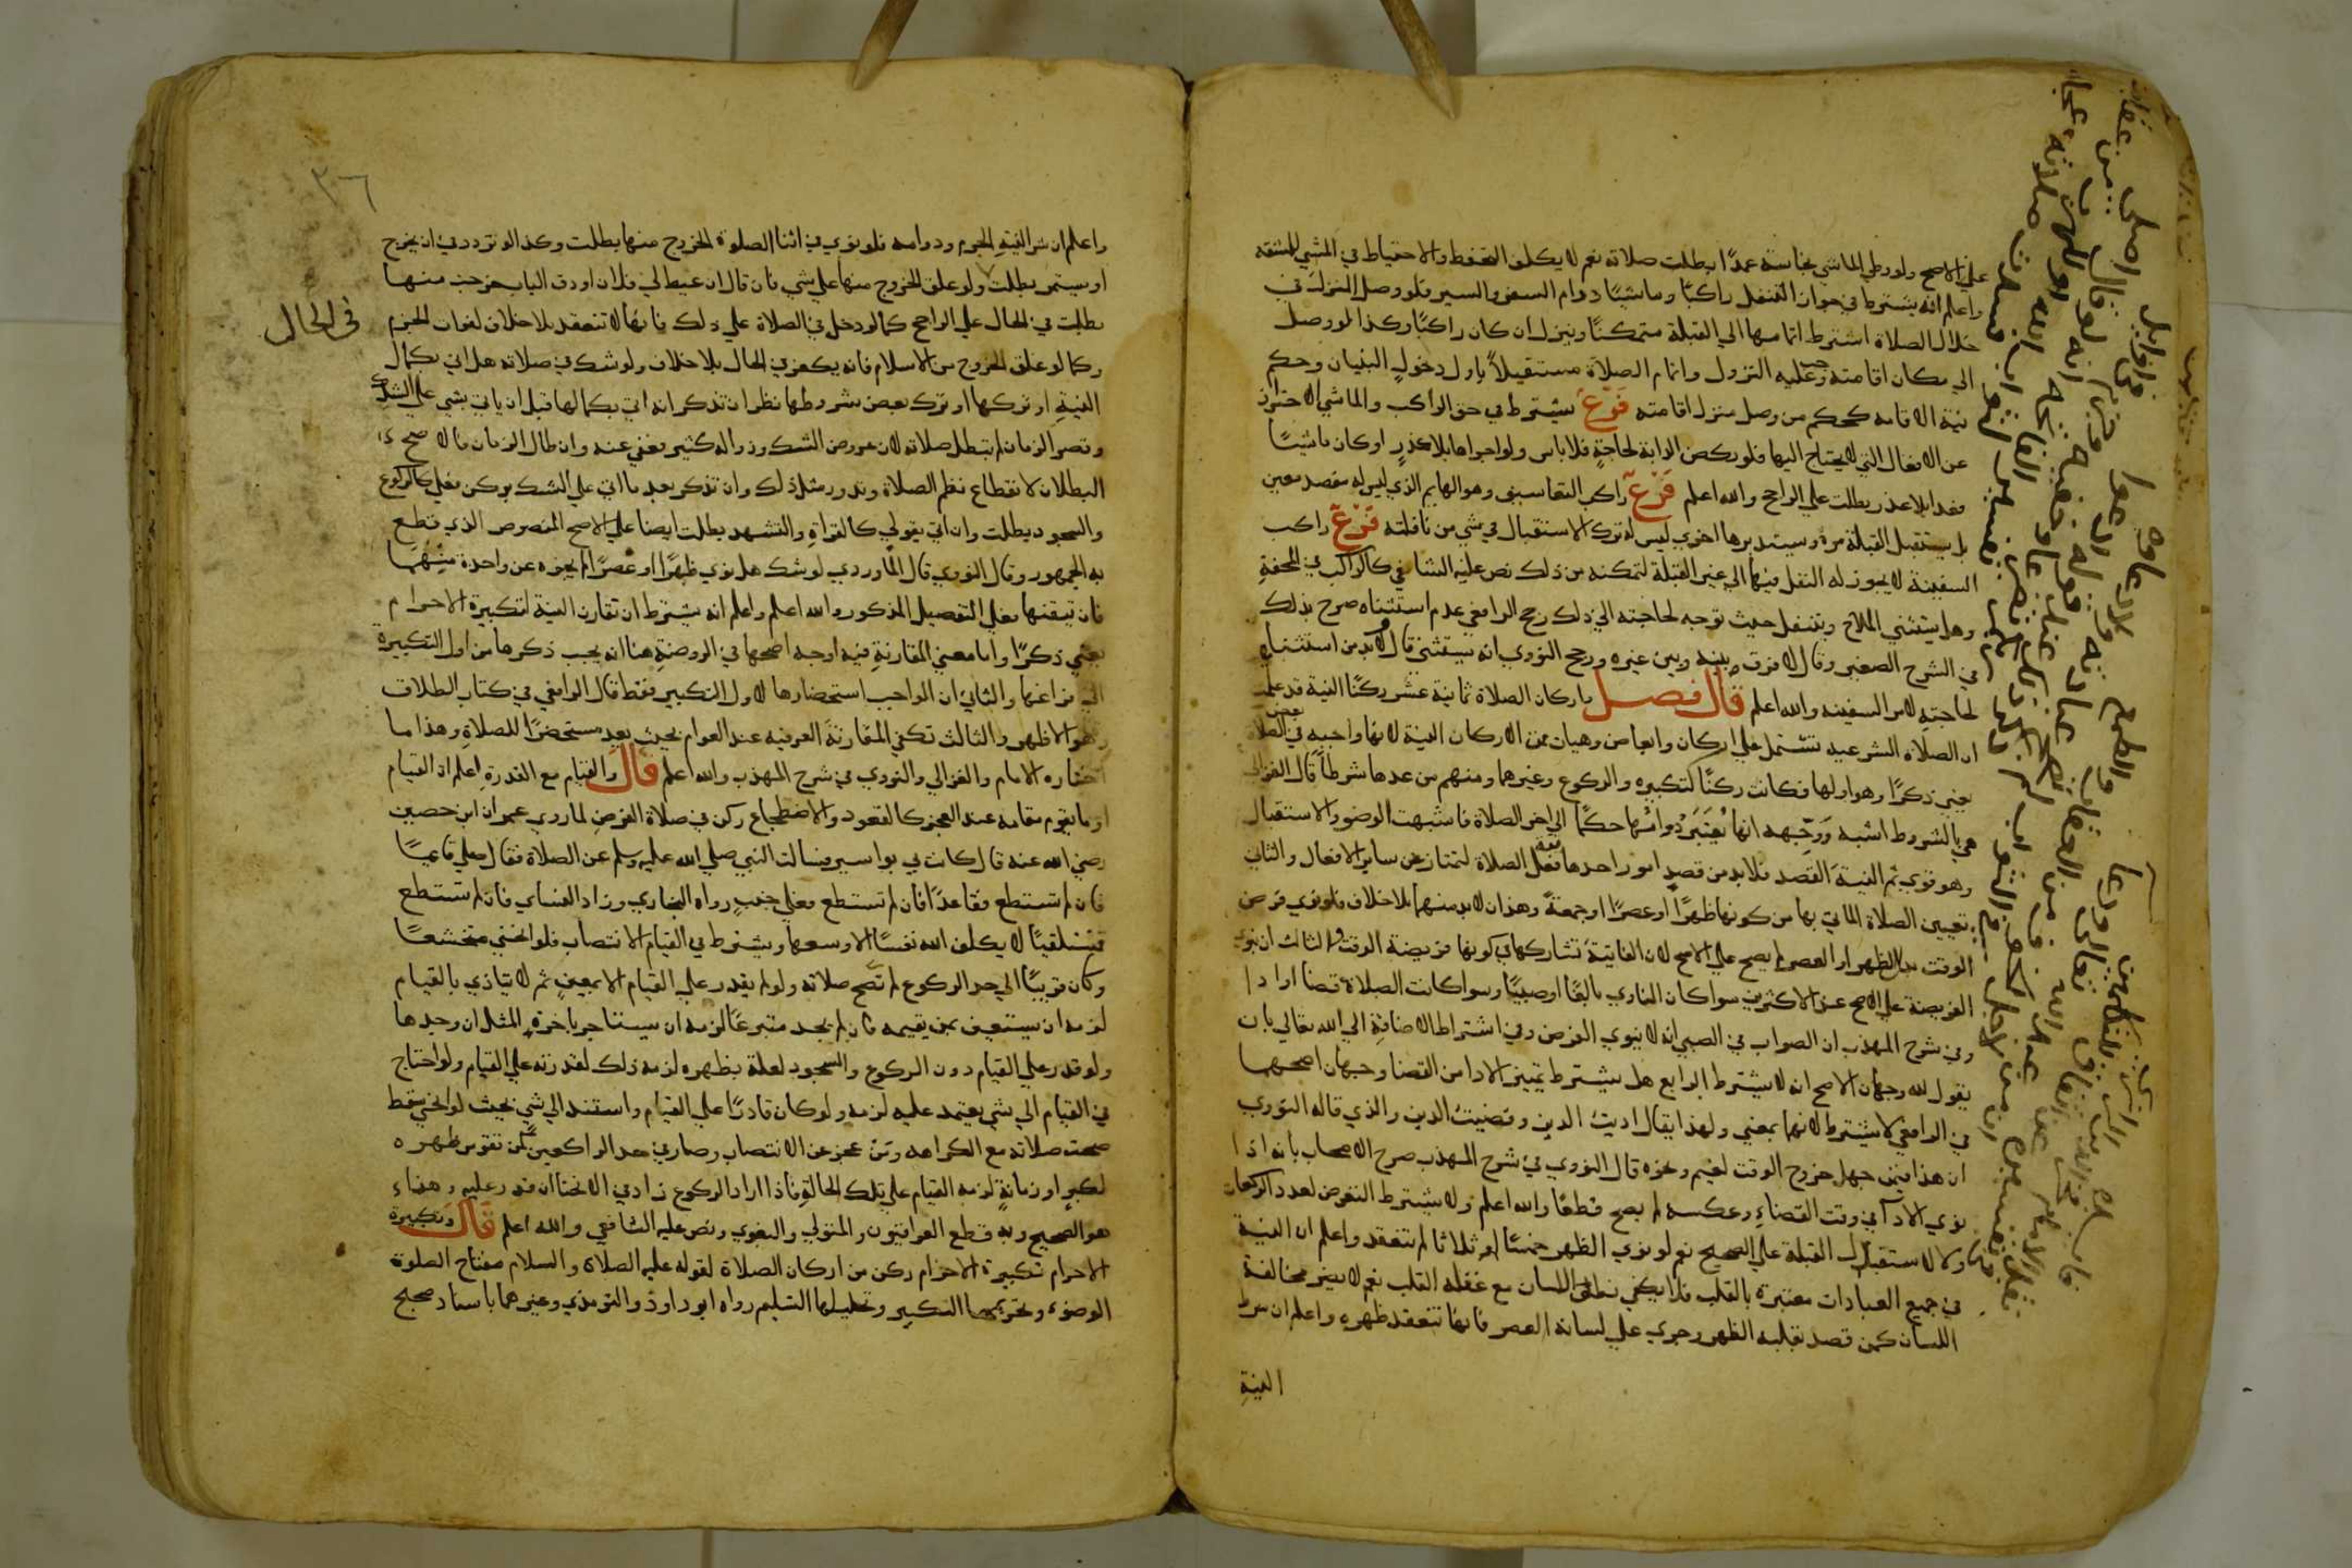 علي الاصح ولو وطي الماشي نجاسة عمدًا بطلت صلاته نعم لا يكلف التحفظ والاحتياط في المشي للمشقه
واعلم انه يشترط في جواز التنفل راكبًا وماشيًا دوام السفر والسير فلو وصل المنزل في
خلال الصلاة اشترط اتمامها الي القبلة متمكنًا وينزل ان كان راكبًا وكذا لو وصل
الي مكان اقامته وجب عليه النزول واتمام الصلاة مستقبلاً باول دخول البنيان وحكم
نية الاقامه كحكم من وصل منزل اقامته فَرْعٌ يشترط في حق الراكب والماشي الاحتراز
عن الافعال التي لا يحتاج اليها فلو ركض الدابة لحاجةٍ فلا باس ولو اجراها بلا عذرٍ او كان ماشيًا
فعدا بلا عذر بطلت علي الراجح والله اعلم فَرْعٌ راكب التعاسيف وهو الهايم الذي ليس له مقصد معين
بل يستقبل القبلة مرة ويستدبرها اخري ليس له ترك الاستقبال في شي من نافلته فَرْعٌ راكب
السفينة لا يجوز له النفل فيها الي غير القبلة لتمكنه من ذلك نص عليه الشافعي كالراكب في المحفةِ
وهل يستثني الملاح ويتنفل حيث توجه لحاجته الي ذلك رجح الرافعي عدم استثناه صرح بذلك
في الشرح الصغير وقال لا فرق بينه وبين غيره ورجح النووي انه يستثني قال ولا بد من استثنايه
لحاجتهِ لامر السفينه والله اعلم قال فصل واركان الصلاة ثمانية عشر ركنًا النية قد علمت
ان الصلاه الشرعيه تشتمل علي اركان وابعاض وهيات فمن الاركان النية لانها واجبه في بعض الصلاة
يعني ذكرًا وهو اولها فكانت ركنًا كتكبيره والركوع وغيرهما ومنهم من عدها شرطاً قال الغزالي
هي بالشروط اشبه وَوَجّهه انها يُعْتَبَرُ دوامُها حكمًا الي اخر الصلاة فاشبهت الوضو والاستقبال
وهو قوي ثم النية القصد فلا بد من قصد امور احدها فعل الصلاة لتمتاز عن ساير الافعال والثاني
تعيين الصلاة الماتي بها من كونها ظهرًا او عصرًا او جمعةً وهذان لا بد منهما بلا خلاف فلو نوي فرض
الوقت بدل الظهر او العصر لم يصح علي الاصح لان الفايتة تشاركها في كونها فريضة الوقت والثالث ان ينوي
الفريضة علي الاصح عند الاكثرين سواكان الناوي بالغًا او صبيًا وسوا كانت الصلاة قضا او ادا
وفي شرح المهذب ان الصواب في الصبي انه لا ينوي الفرض وفي اشتراط الاضافة الي الله تعالي بان
يقول لله وجهان الاصح انه لا يشترط الرابع هل يشترط تمييز الادا من القضا وجهان اصحهما
في الرافعي لا يشترط لانهما بمعني ولهذا يقال اديت الدين وقضيت الدين والذي قاله النووي
ان هذا فيمن جهل خروج الوقت لغيم ونحوه قال النووي في شرح المهذب صرح الاصحاب بانه اذا
نوي الادا في وقت القضاءِ وعكسه لم يصح قطعًا والله اعلم ولا يشترط التعرض لعدد الركعات
ولا لاستقبال القبلة علي الصحيح نعم لو نوي الظهر خمسًا او ثلاثا لم تنعقد واعلم ان النية
في جميع العبادات معتبرة بالقلب فلا يكفي نطق اللسان مع غفله القلب نعم لا يضر مخالفة
اللسان كمن قصد بقلبه الظهر وجري علي لسانه العصر فانها تنعقد ظهره واعلم ان شرط
النية
٣٦
واعلم ان شرط النيةِ الجزم ودوامه فلو نوي في اثنا الصلوة الخروج منها بطلت وكذا لو تردد في ان يخرج
او يستمر بطلت ولو علق الخروج منها علي شي فان قال ان عيط لي فلان او دق الباب خرجت منها
بطلت في الحال علي الراجح كما لو دخل في الصلاة علي ذلك فانها لا تنعقد بلا خلاف لفوات الجزم
في الحال
وكما لو علق الخروج من الاسلام فانه يكفر في الحال بلا خلاف ولو شك في صلاته هل اتي بكمال
النيةِ او تركها او ترك بعض شروطها نظر ان تذكر انه اتي بكمالها قبل ان ياتي بشي علي الشك
وقصر الزمان لم تبطل صلاته لان عروض الشك وزواله كثير يعفي عنه وان طال الزمان فالاصح
البطلان لانقطاع نظم الصلاة وندور مثل ذلك وان تذكر بعد ما اتي علي الشك بركن فعلي كالركوع
والسجود بطلت وان اتي بقولي كالقراةِ والتشهد بطلت ايضا علي الاصح المنصوص الذي قطع
به الجمهور وقال النووي قال الماوردي لو شك هل نوي ظهرًا او عصرًا لم يجزه عن واحدة منهُما
فان تيقنها فعلي التفصيل المذكور والله اعلم واعلم انه يشترط ان تقارن النية لتكبيرة الاحرام
يعني ذكرًا واما معني المقارنةِ ففيه اوجه اصحها في الروضةِ هنا انه يجب ذكرها من اول التكبيرة
الي فراغها والثاني ان الواجب استحضارها لاول التكبير فقط قال الرافعي في كتاب الطلاق
وهو الاظهر والثالث تكفي المقارنةَ العرفيه عند العوام بحيث يعد مستحضرًا للصلاةِ وهذا ما
اختاره الامام والغزالي والنووي في شرح المهذب والله اعلم قال والقيام مع القدرةِ اعلم ان القيام
او ما يقوم مقامه عند العجز كالقعود والاضطجاع ركن في صلاة الفرضِ لما روي عمران ابن حصين
رضي الله عنه قال كانت بي بواسير فسالت النبي صلي الله عليه وسلم عن الصلاة فقال صلي قايمًا
فان لم تستطع فقاعدًا فان لم تستطع فعلي جنبٍ رواه البخاري وزاد النساي فان لم تستطع
فمستلقيًا لا يكلف الله نفسًا الا وسعها ويشترط في القيام الانتصاب فلو انحني متخشعًا
وكان قريبًا الي حد الركوع لم تصح صلاته ولو لم يقدر علي القيام الا بمعينٍ ثم لا يتاذي بالقيام
لزمه ان يستعين بمن يقيمه فان لم يجد متبرعًا لزمه ان يستاجر باجره المثل ان وجدها
ولو قدر علي القيام دون الركوع والسجود لعلة بظهره لزمه ذلك لقدرته علي القيام ولو احتاج
في القيام الي شي يعتمد عليه لزمه ولو كان قادرًا علي القيام واستند الي شي بحيث لو نحي سقط
صحت صلاته مع الكراهه ومن عجز عن الانتصاب وصار في حد الراكعين كمن تقوس ظهره
لكبرٍ او زمانةٍ لزمه القيام علي تلك الحالةِ فاذا اراد الركوع زاد في الانحنا ان قدر عليه وهذا
هو الصحيح وبه قطع العراقيون والمتولي والبغوي ونص عليه الشافعي والله اعلم قَالَ وتكبيرة
الاحرام تكبيرة الاحرام ركن من اركان الصلاة لقوله عليه الصلاة والسلام مفتاح الصلوة
الوضوء وتحريمها التكبير وتحليلها التسليم رواه ابو داود والترمذي وغيرهما باسناد صحيح